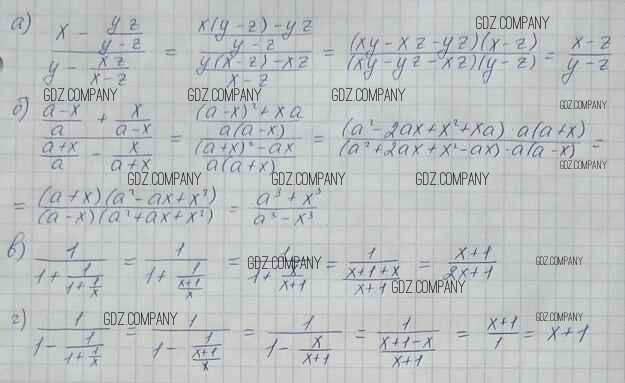 GDZ.COMPANY
а) (x - yz/(y-z))/(y - xz/(x-z)) = ((x(y-z)-yz)/(y-z))/((y(x-z)-xz)/(x-z)) = ((xy-xz-yz)(x-z))/((xy-yz-xz)(y-z)) = (x-z)/(y-z)
GDZ.COMPANY GDZ.COMPANY GDZ.COMPANY
б) ((a-x)/a + x/(a-x))/((a+x)/a - x/(a+x)) = (((a-x)²+xa)/(a(a-x)))/(((a+x)²-ax)/(a(a+x))) = ((a²-2ax+x²+xa)·a(a+x))/((a²+2ax+x²-ax)·a(a-x)) =
GDZ.COMPANY
GDZ.COMPANY GDZ.COMPANY GDZ.COMPANY
= ((a+x)(a²-ax+x²))/((a-x)(a²+ax+x²)) = (a³+x³)/(a³-x³)
в) 1/(1+1/(1+1/x)) = 1/(1+1/((x+1)/x)) = 1/(1+x/(x+1)) = 1/((x+1+x)/(x+1)) = (x+1)/(2x+1)
GDZ.COMPANY GDZ.COMPANY
GDZ.COMPANY
г) 1/(1-1/(1+1/x)) = 1/(1-1/((x+1)/x)) = 1/(1-x/(x+1)) = 1/((x+1-x)/(x+1)) = (x+1)/1 = x+1
GDZ.COMPANY GDZ.COMPANY